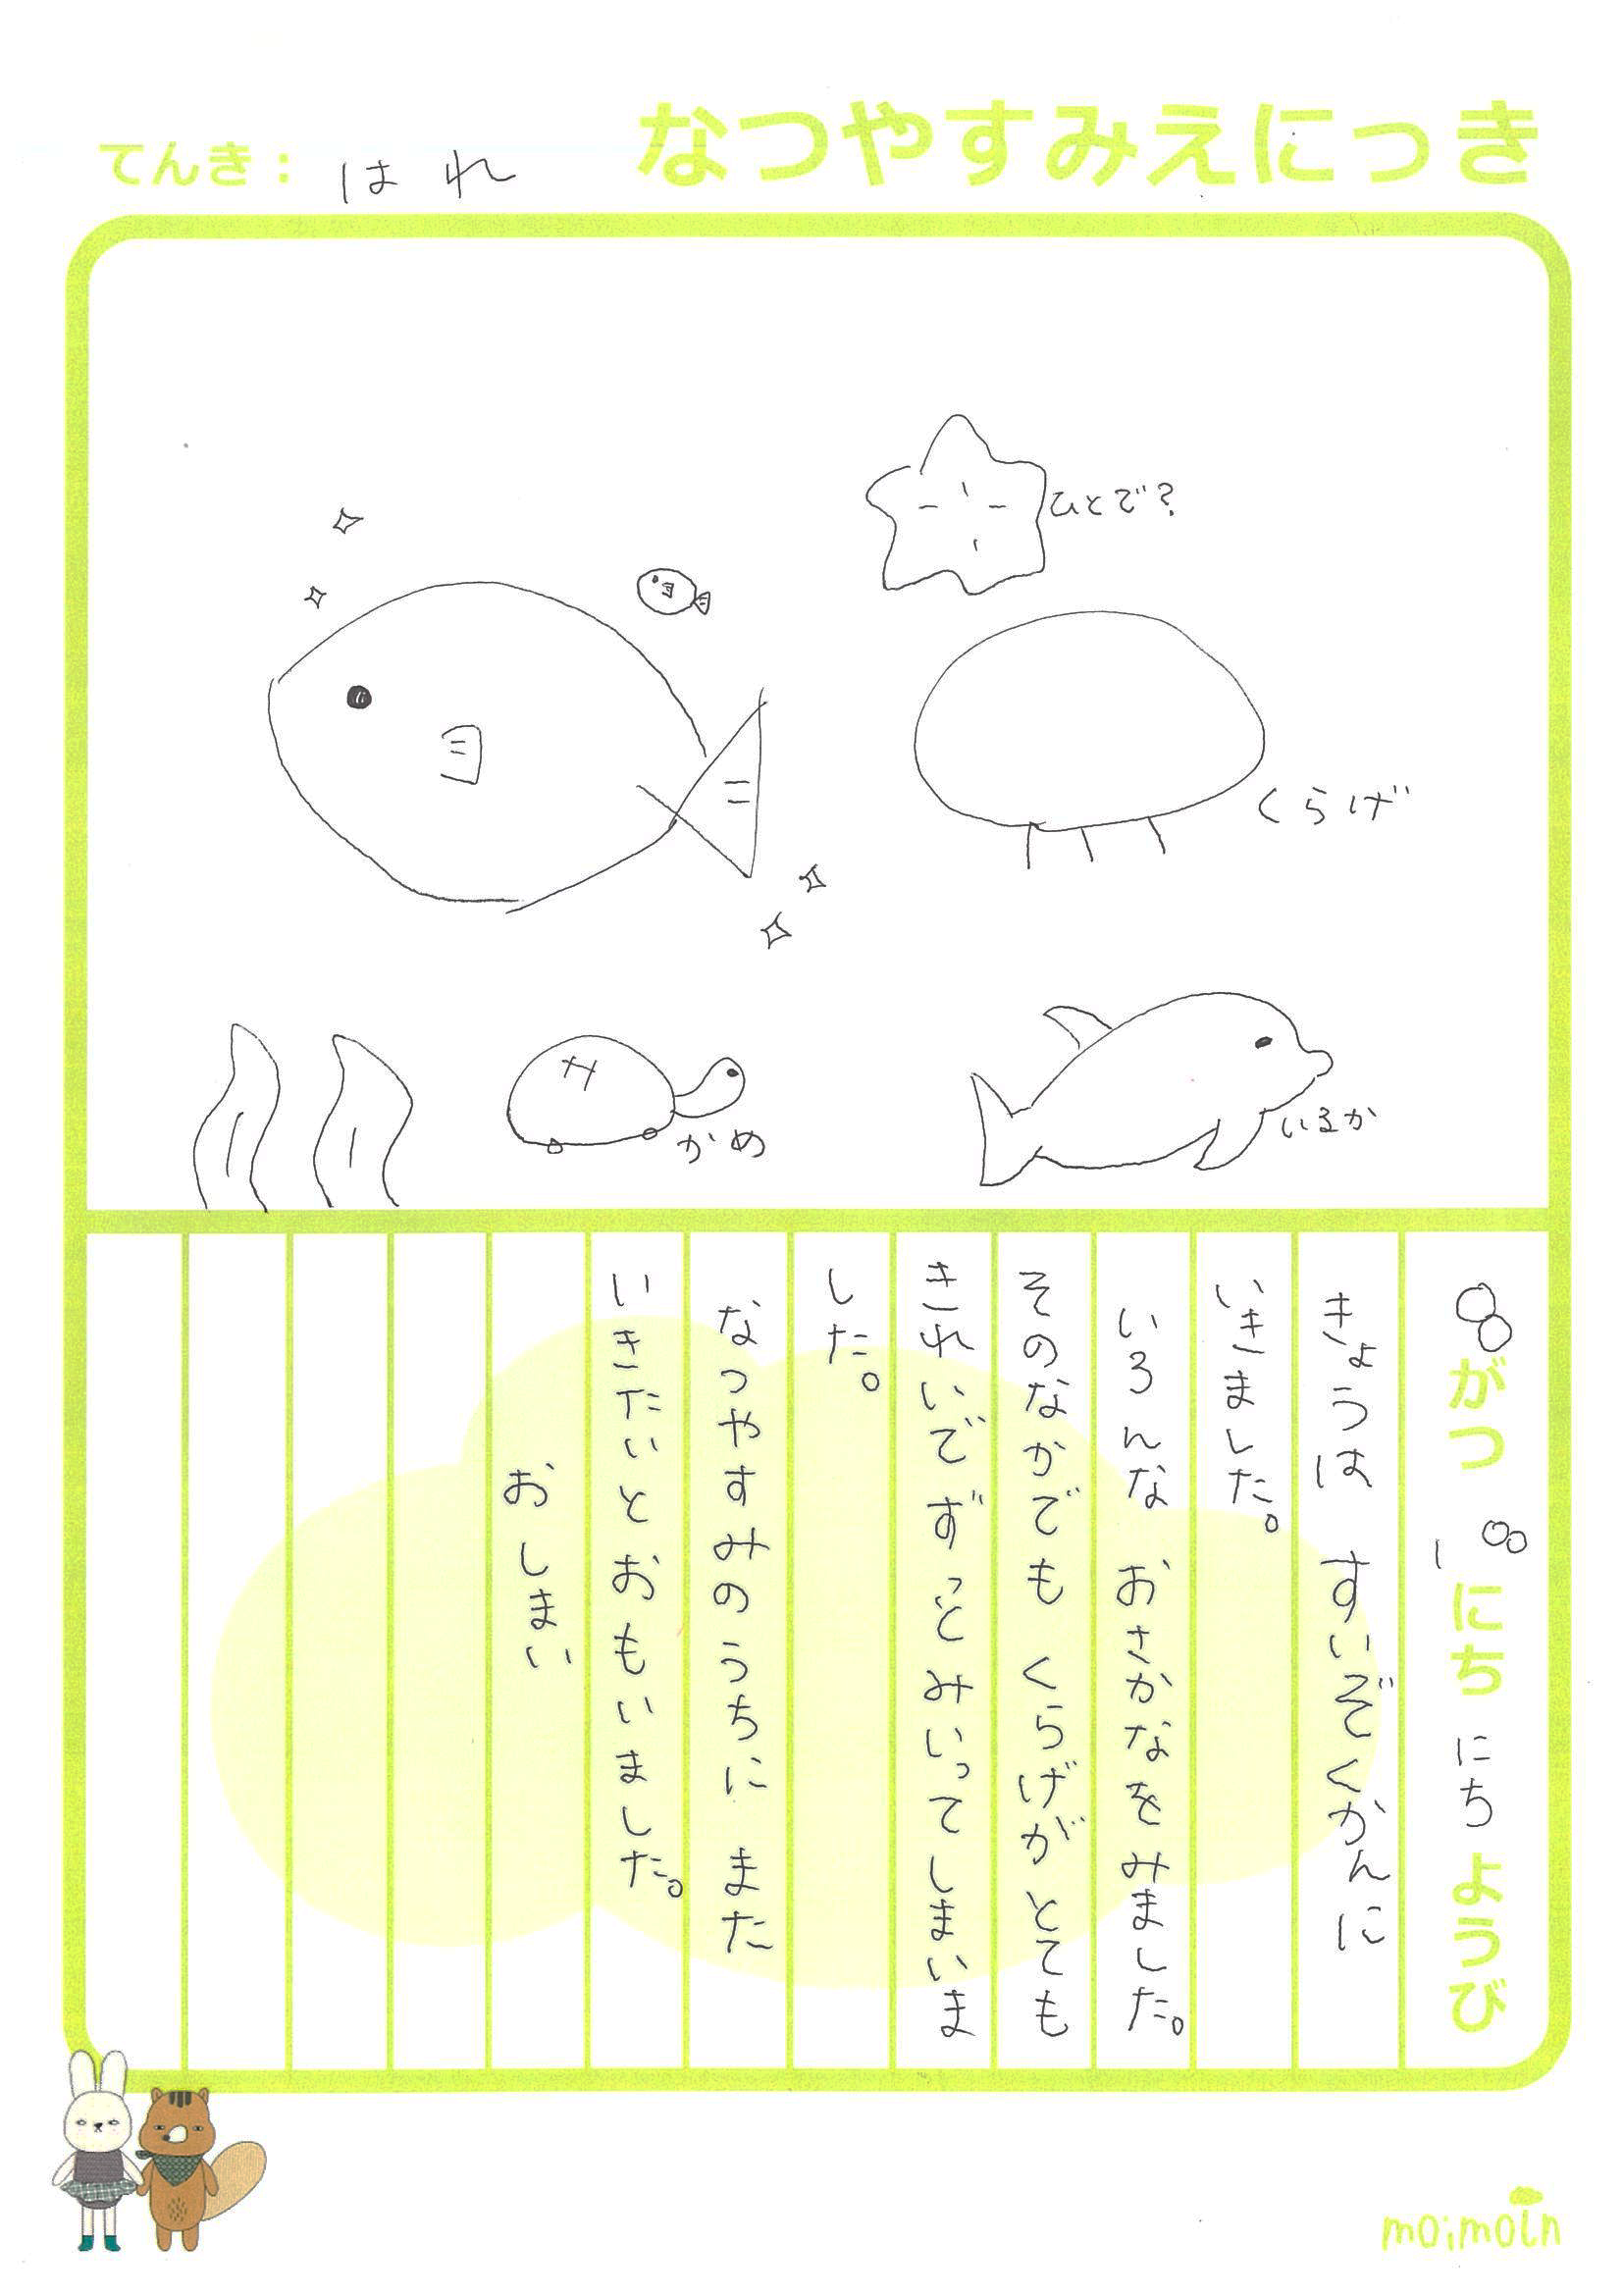 なつやすみえにっき
てんき：はれ
ひとで？
くらげ
かめ
いるか
8がつ 18にち にちようび
きょうは すいぞくかんに
いきました。
いろんな おさかなをみました。
そのなかでも くらげが とても
きれいで ずっと みいってしまいま
した。
なつやすみのうちに また
いきたいとおもいました。
おしまい
moimoln